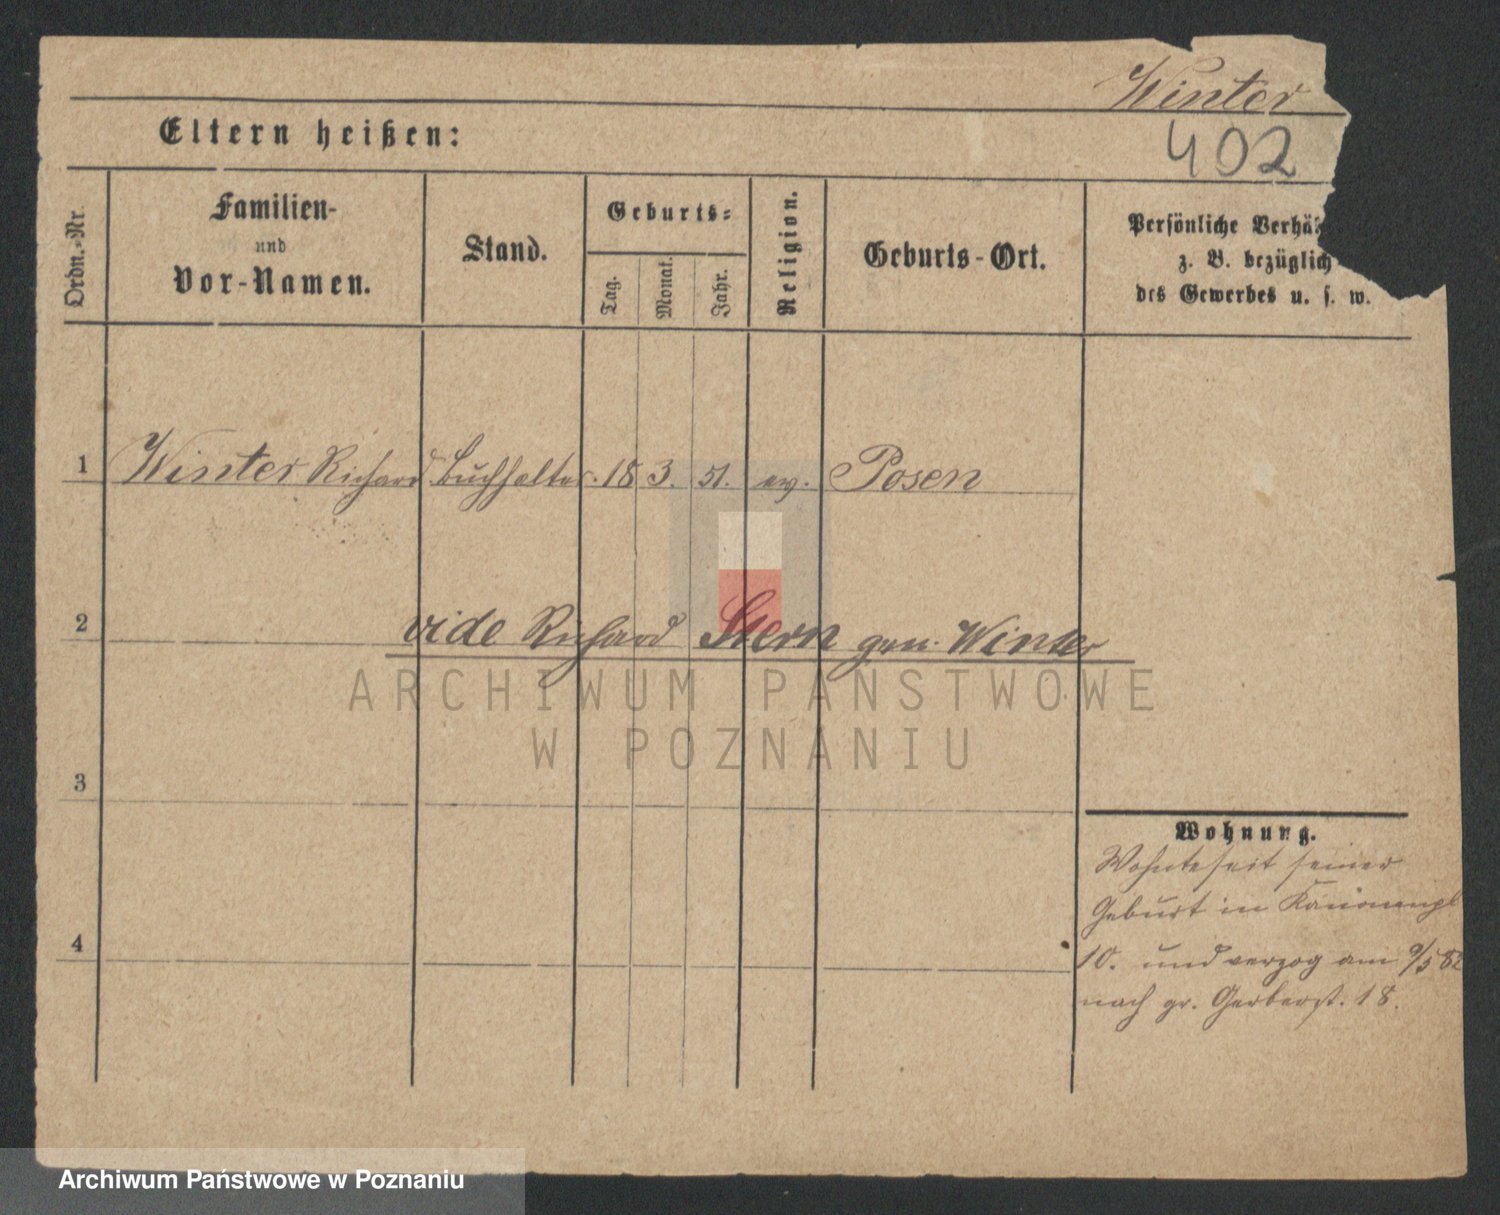 Winter
402
Eltern heißen:
Ordn.-Nr.
Familien-
und
Vor-Namen.
Stand.
Geburts-
Tag.
Monat.
Jahr.
Religion.
Geburts-Ort.
Persönliche Verhä
z. B. bezüglich
des Gewerbes u. s. w.
1 Winter Richard Buchhalter. 18 3. 51. ev. Posen
2
vide Richard Stern gen. Winter
ARCHIWUM PAŃSTWOWE
W POZNANIU
3
Wohnung.
Wohnte seit seiner
Geburt in Kanonenpl
10. und verzog am 9/5 82
nach gr. Gerberst. 18.
4
Archiwum Państwowe w Poznaniu